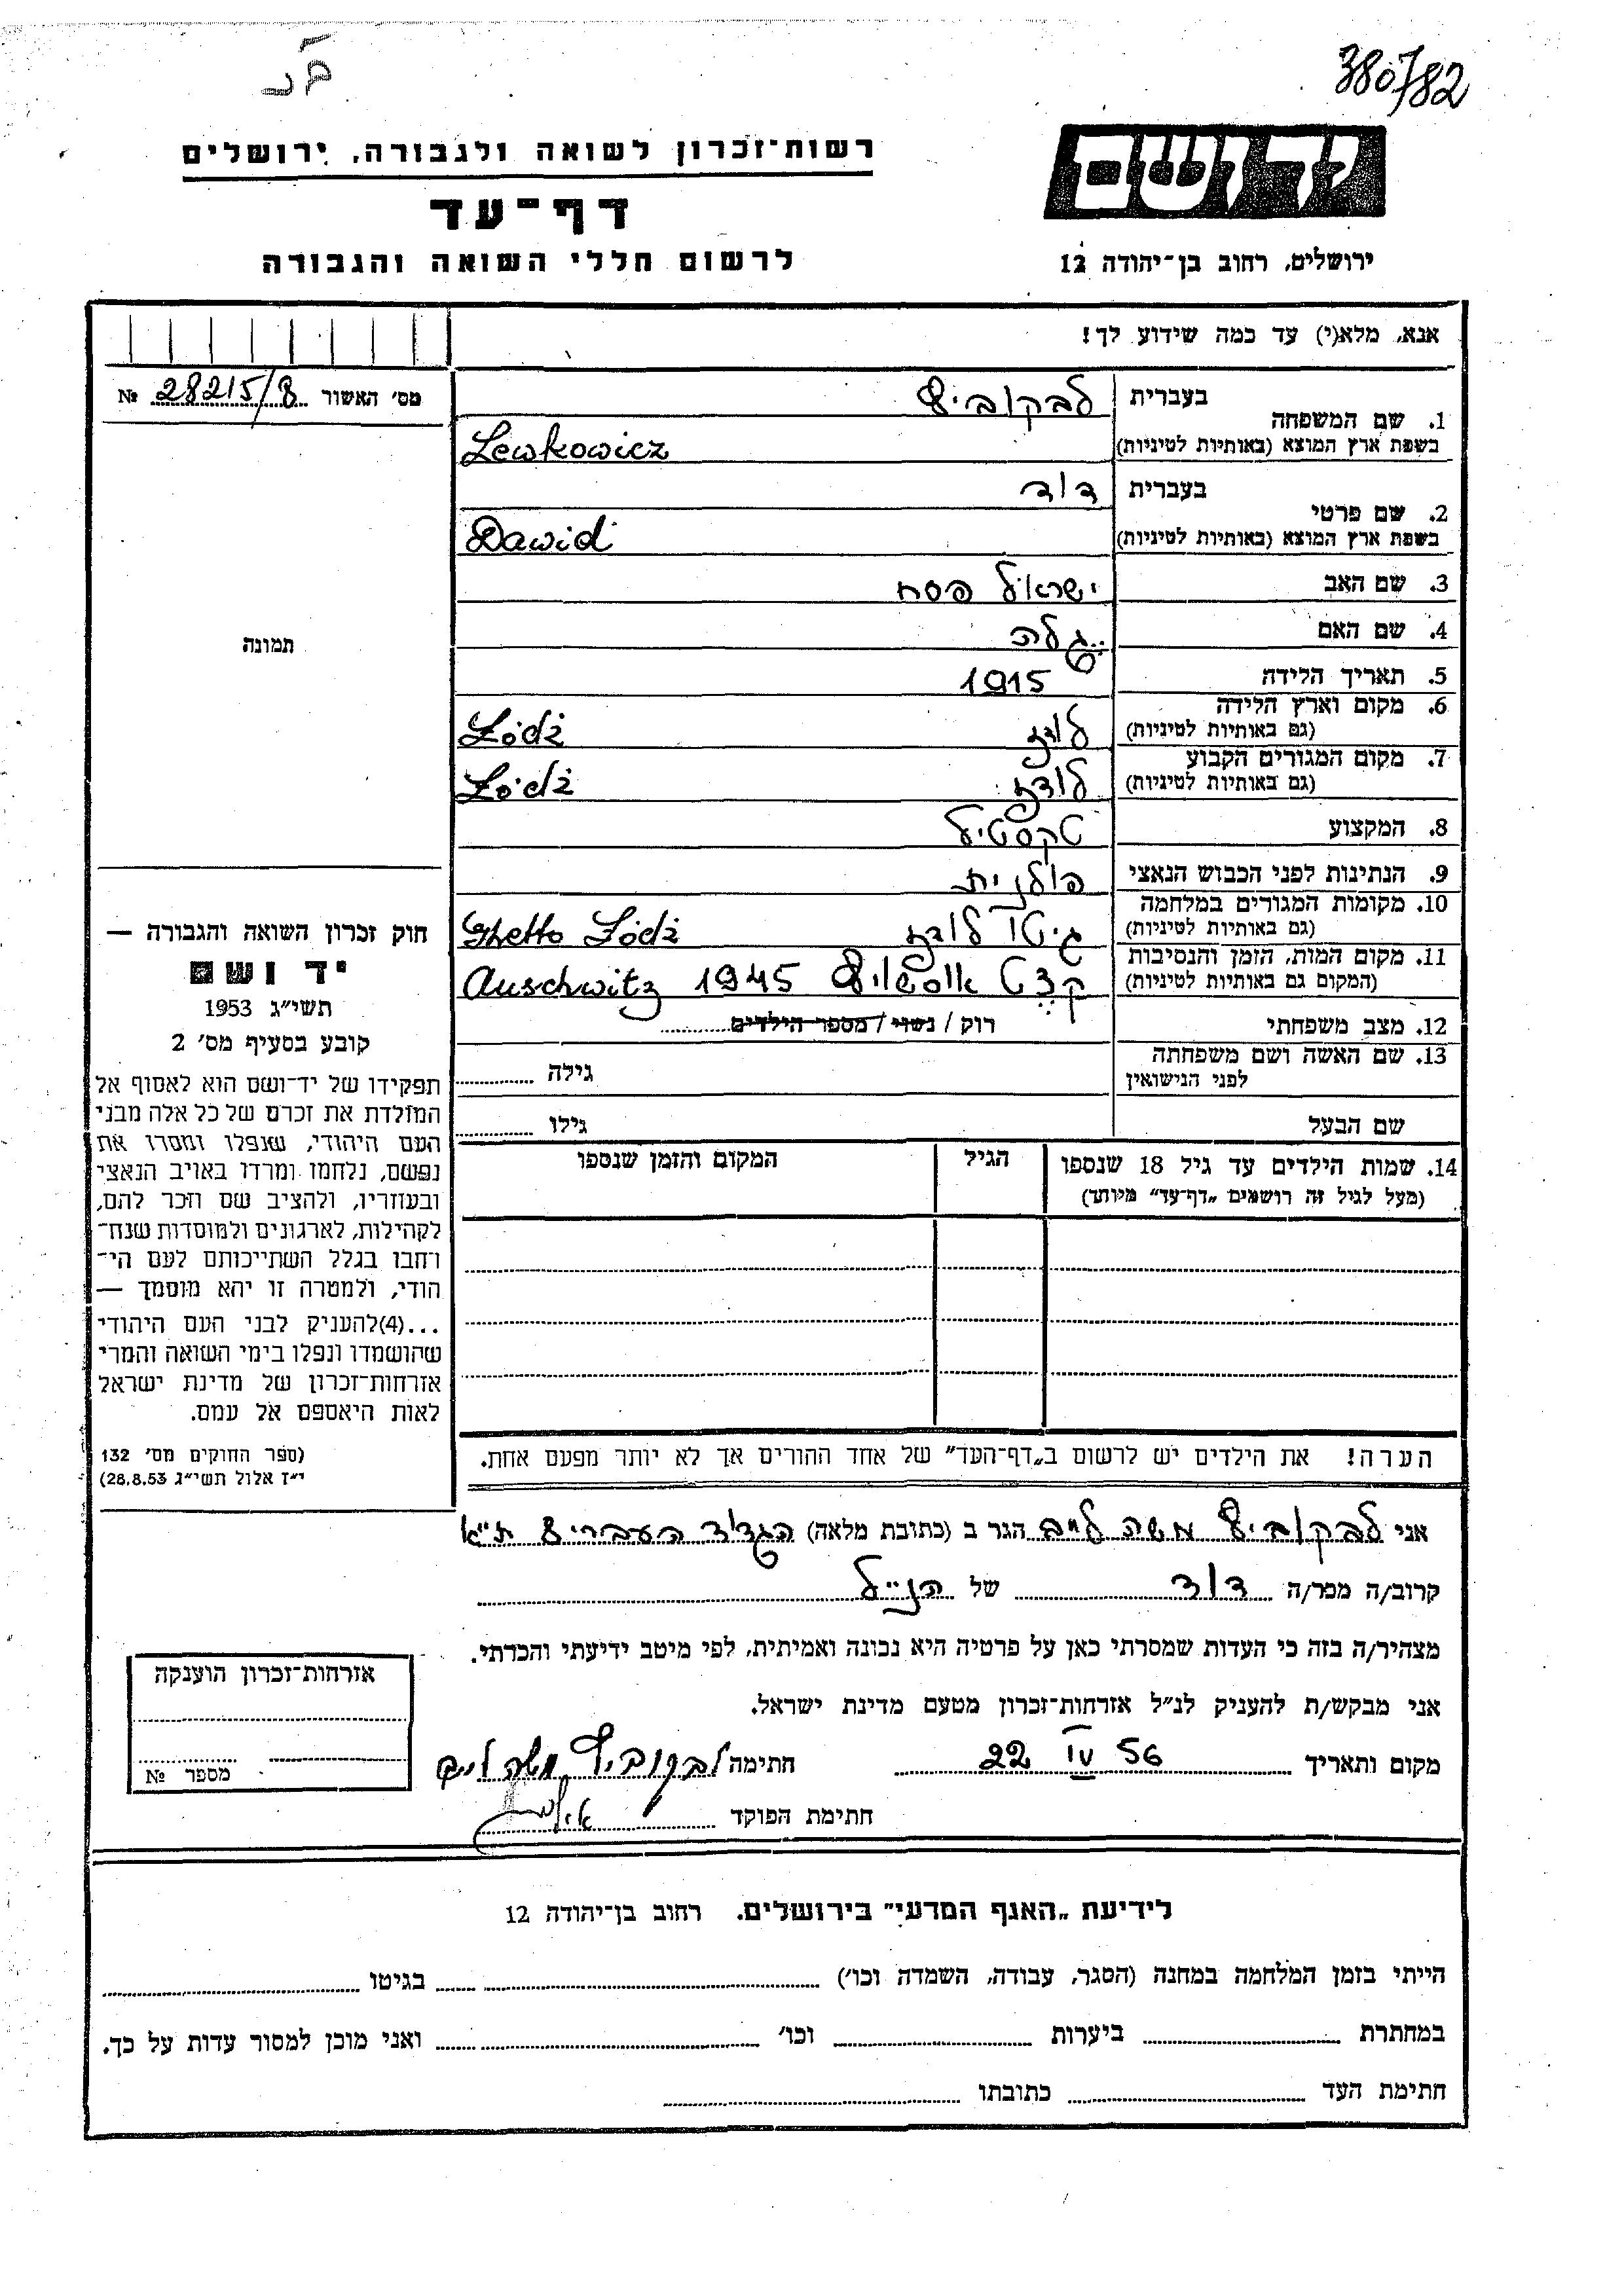 380782
רשות־זכרון לשואה ולגבורה, ירושלים
יד ושם
דף־עד
לרשום חללי השואה והגבורה
ירושלים, רחוב בן־יהודה 12
אנא, מלא(י) עד כמה שידוע לך!
מס׳ האשור 28215/8 №
1. שם המשפחה
בעברית לבקוביץ
בשפת ארץ המוצא (באותיות לטיניות) Lewkowicz
2. שם פרטי
בעברית דוד
בשפת ארץ המוצא (באותיות לטיניות) Dawid
3. שם האב ישראל פסח
4. שם האם
5. תאריך הלידה 1915
6. מקום וארץ הלידה
(גם באותיות לטיניות) לודז Łódź
7. מקום המגורים הקבוע
(גם באותיות לטיניות) לודז Łódź
8. המקצוע טקסטיל
9. הנתינות לפני הכבוש הנאצי פולנית
10. מקומות המגורים במלחמה
(גם באותיות לטיניות) גיטו לודז Ghetto Łódź
11. מקום המות, הזמן והנסיבות
(המקום גם באותיות לטיניות) קצט אושויץ 1945 Auschwitz
12. מצב משפחתי רוק / נשוי / מספר הילדים
13. שם האשה ושם משפחתה
לפני הנישואין גילה
שם הבעל גילו
14. שמות הילדים עד גיל 18 שנספו הגיל המקום והזמן שנספו
(מעל לגיל זה רושמים „דף־עד״ מיוחד)
הערה! את הילדים יש לרשום ב„דף־העד״ של אחד ההורים אך לא יותר מפעם אחת.
תמונה
חוק זכרון השואה והגבורה —
יד ושם
תשי״ג 1953
קובע בסעיף מס׳ 2
תפקידו של יד־ושם הוא לאסוף אל
המולדת את זכרם של כל אלה מבני
העם היהודי, שנפלו ומסרו את
נפשם, נלחמו ומרדו באויב הנאצי
ובעוזריו, ולהציב שם וזכר להם,
לקהילות, לארגונים ולמוסדות שנח־
רחבו בגלל השתייכותם לעם הי־
הודי, ולמטרה זו יהא מוסמך —
...(4)להעניק לבני העם היהודי
שהושמדו ונפלו בימי השואה והמרי
אזרחות־זכרון של מדינת ישראל
לאות היאספם אל עמם.
(ספר החוקים מס׳ 132
י״ז אלול תשי״ג 28.8.53)
אני לבקוביץ משה לייב הגר ב (כתובת מלאה) הגדוד העברי 8 ת״א
קרוב/ה מכר/ה דוד של הנ״ל
מצהיר/ה בזה כי העדות שמסרתי כאן על פרטיה היא נכונה ואמיתית, לפי מיטב ידיעתי והכרתי.
אני מבקש/ת להעניק לנ״ל אזרחות־זכרון מטעם מדינת ישראל.
מקום ותאריך 22 IV 56 חתימה לבקוביץ משה לייב
חתימת הפוקד
אזרחות־זכרון הוענקה
מספר №
לידיעת „האגף המדעי״ בירושלים. רחוב בן־יהודה 12
הייתי בזמן המלחמה במחנה (הסגר, עבודה, השמדה וכו׳) בגיטו
במחתרת ביערות וכו׳ ואני מוכן למסור עדות על כך.
חתימת העד כתובתו